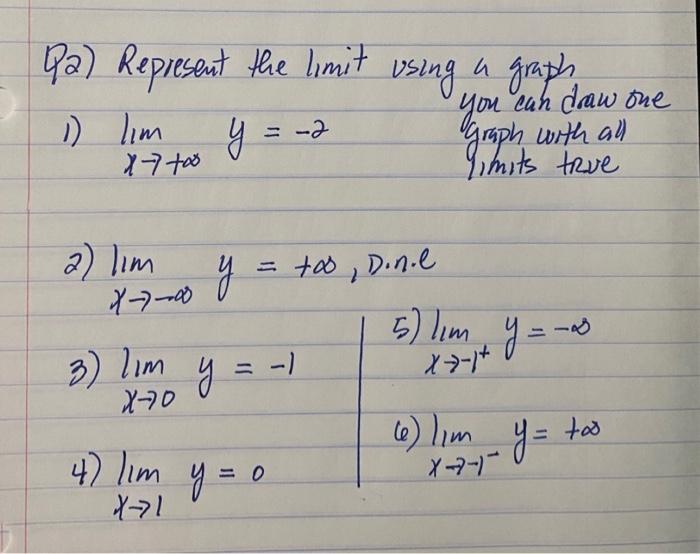 Q2) Represent the limit using a graph
you can draw one
graph with all
limits true
1) lim y = -2
x→+∞
2) lim y = +∞, D.n.e
x→-∞
3) lim y = -1
x→0
4) lim y = 0
x→1
5) lim y = -∞
x→-1⁺
6) lim y = +∞
x→-1⁻